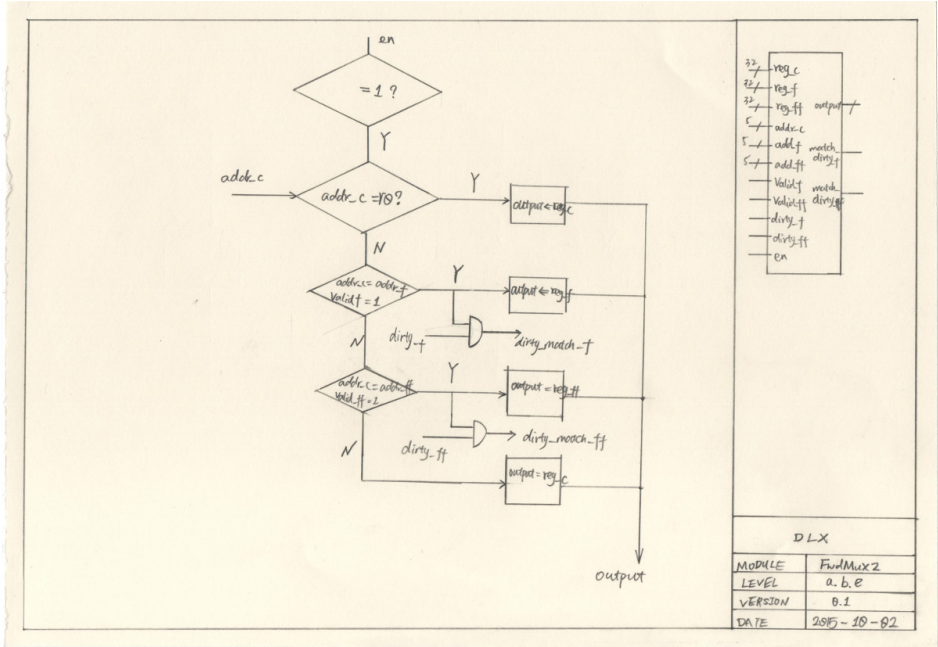 en
= 1 ?
Y
addr_c
addr_c = r0?
Y
output ← reg_c
N
addr_c = addr_f
valid_f = 1
Y
output ← reg_f
dirty_f
dirty_match_f
N
addr_c = addr_ff
valid_ff = 1
Y
output = reg_ff
dirty_ff
dirty_match_ff
N
output = reg_c
output
32 reg_c
32 reg_f
32 reg_ff
output
5 addr_c
5 add_f
match_
dirty_f
5 add_ff
Valid_f
match_
dirty_ff
Valid_ff
dirty_f
dirty_ff
en
DLX
MODULE FwdMux2
LEVEL a.b.e
VERSION 0.1
DATE 2015-10-02